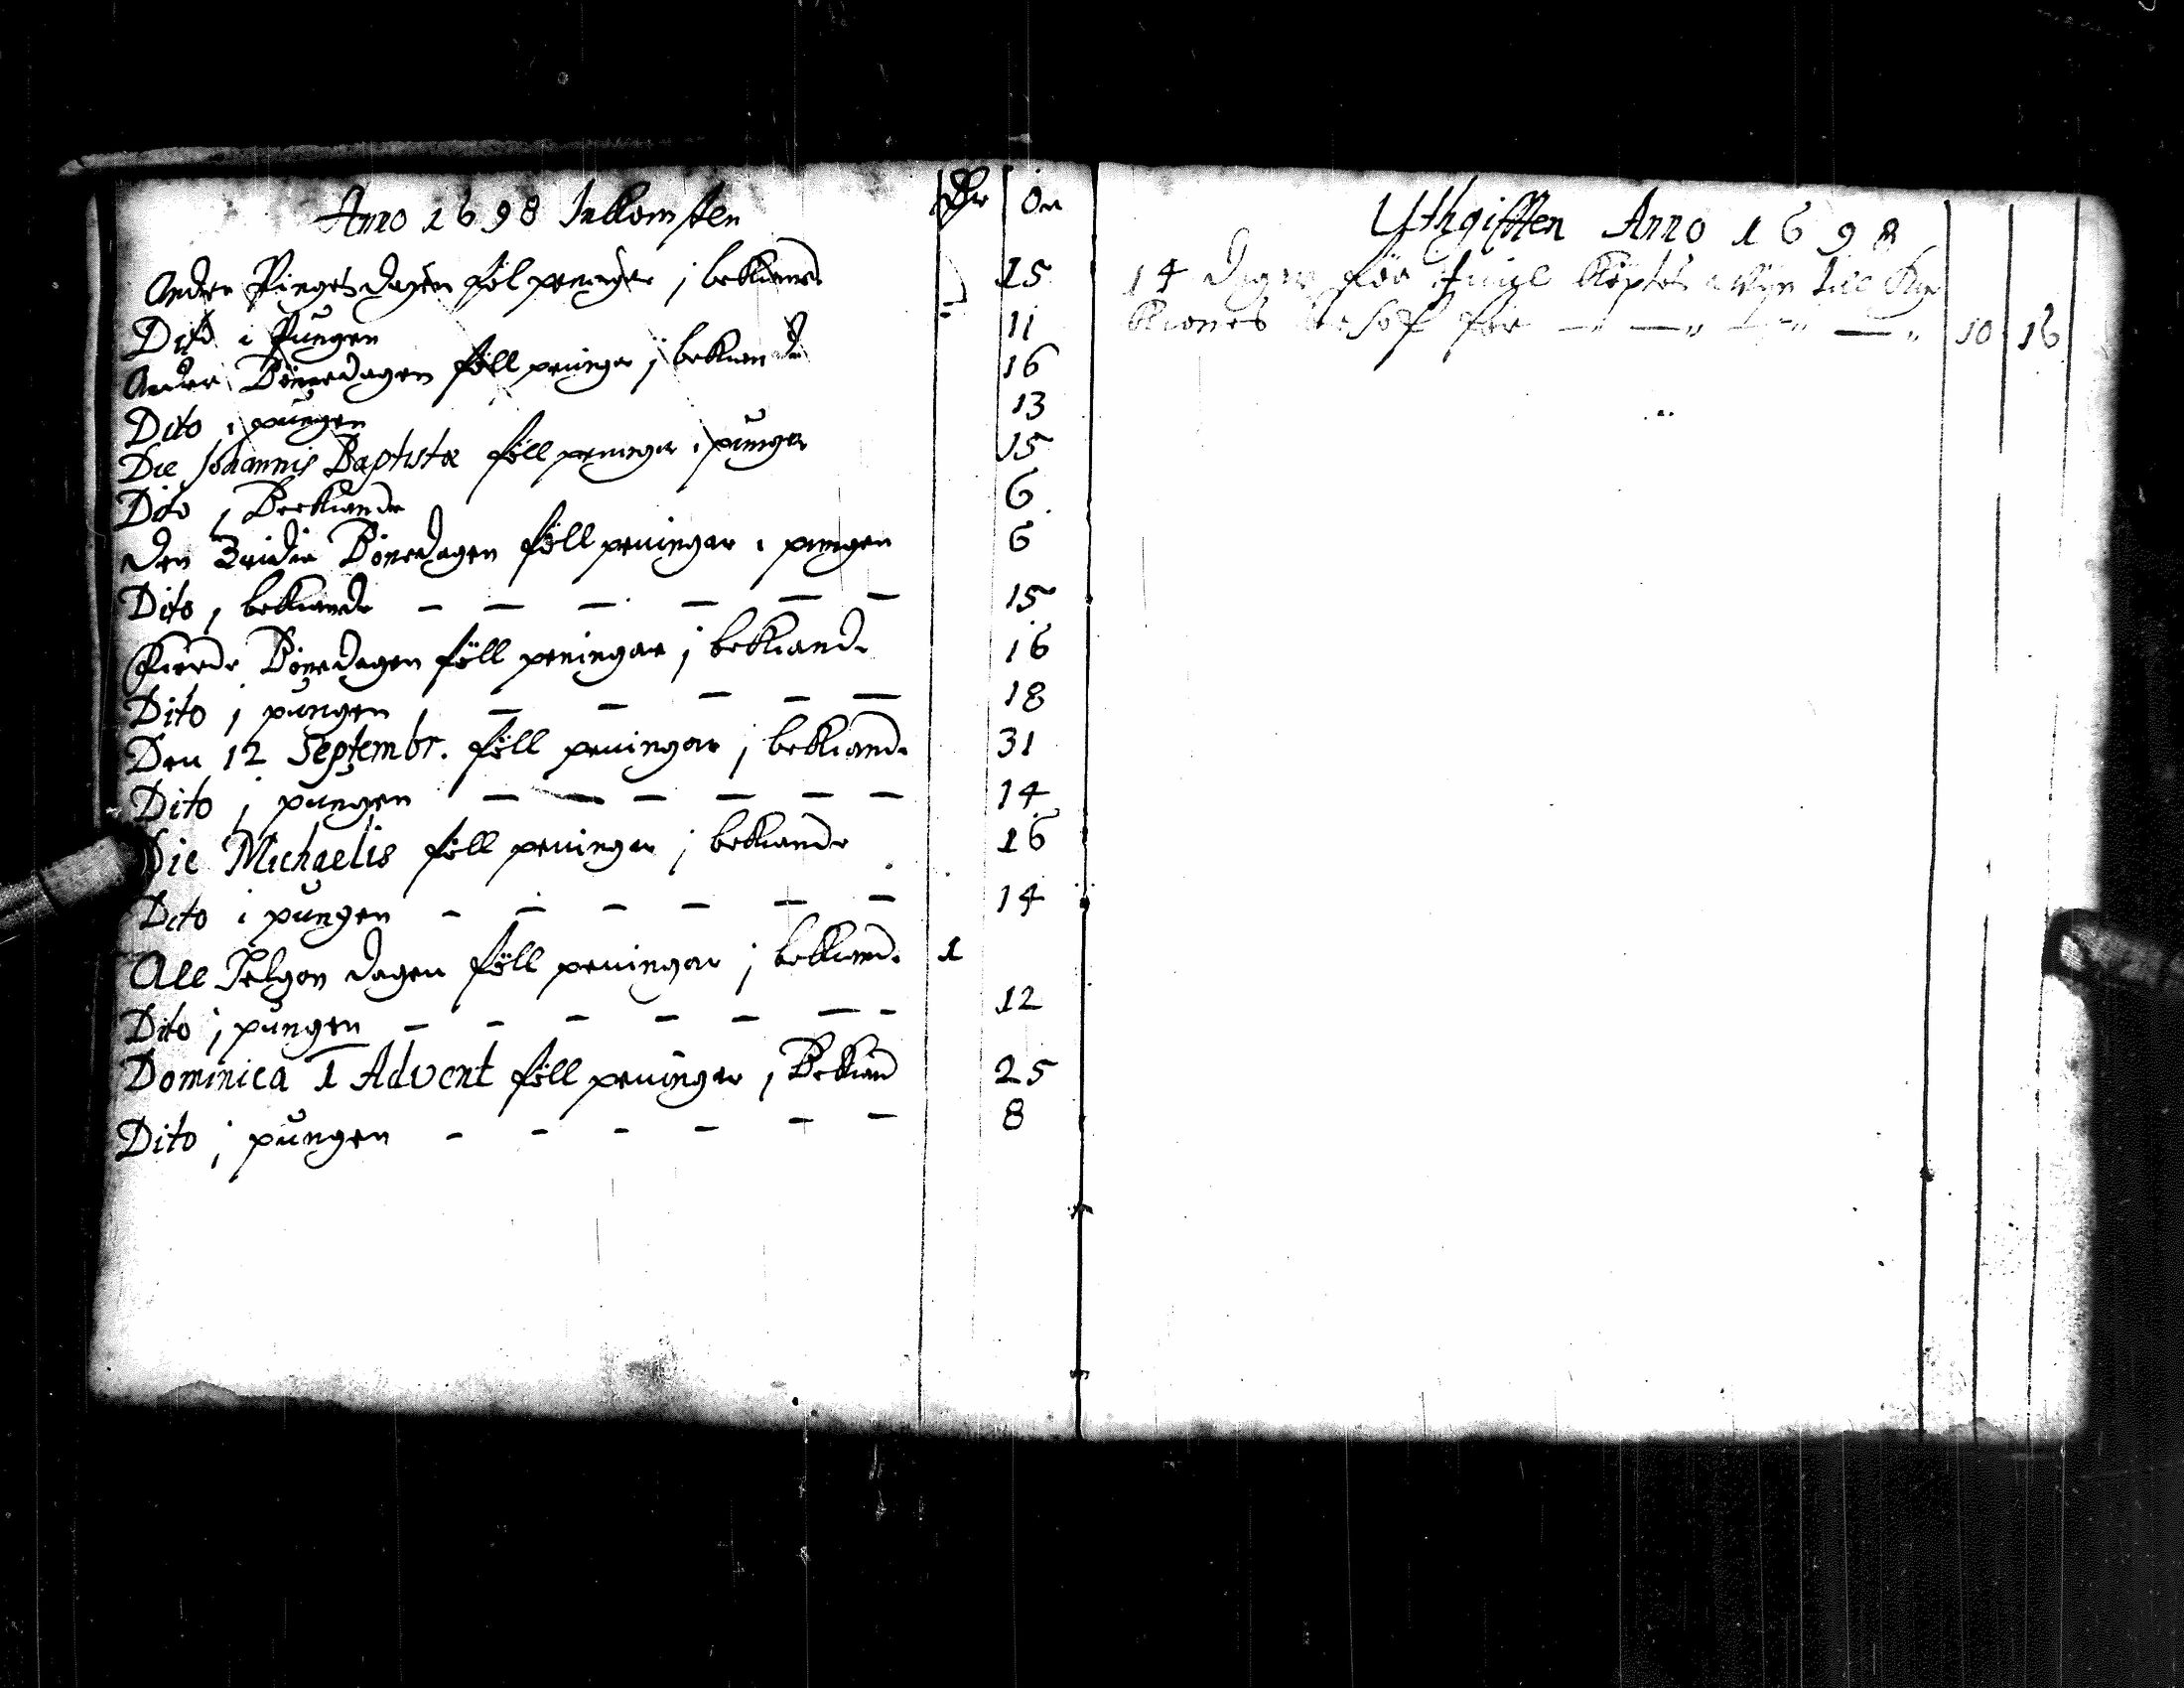 Anno 1698 Inkomsten Dr Ör
Andra Pingesdagen föl peningar j bekiande 15
Dito i Pungen 11
Andra Bönedagen föll peningar j bekiande 16
Dito i pungen 13
Die Johannis Baptistæ föll peningar i pungen 15
Dito j Beckiande 6
Den Tridie Bönedagen föll peningar i pungen 6
Dito j bekiande — — — — — — 15
Fierde Bönedagen föll peningar j bekiande 16
Dito j pungen — — — — — 18
Den 12 Septembr. föll peningar j bekiande 31
Dito j pungen — — — — — — 14
Die Michaelis föll peningar j bekiande 16
Dito i pungen — — — — — — 14
Alle Helgon dagen föll peningar j bekiand. 1
Dito j pungen — — — — — — — 12
Dominica 1 Advent föll peningar j Bekiand 25
Dito j pungen — — — — — — 8
Uthgifften Anno 1698
14 dagar för köptes wijn till Kyr
kiones behof för — — — — 10 16